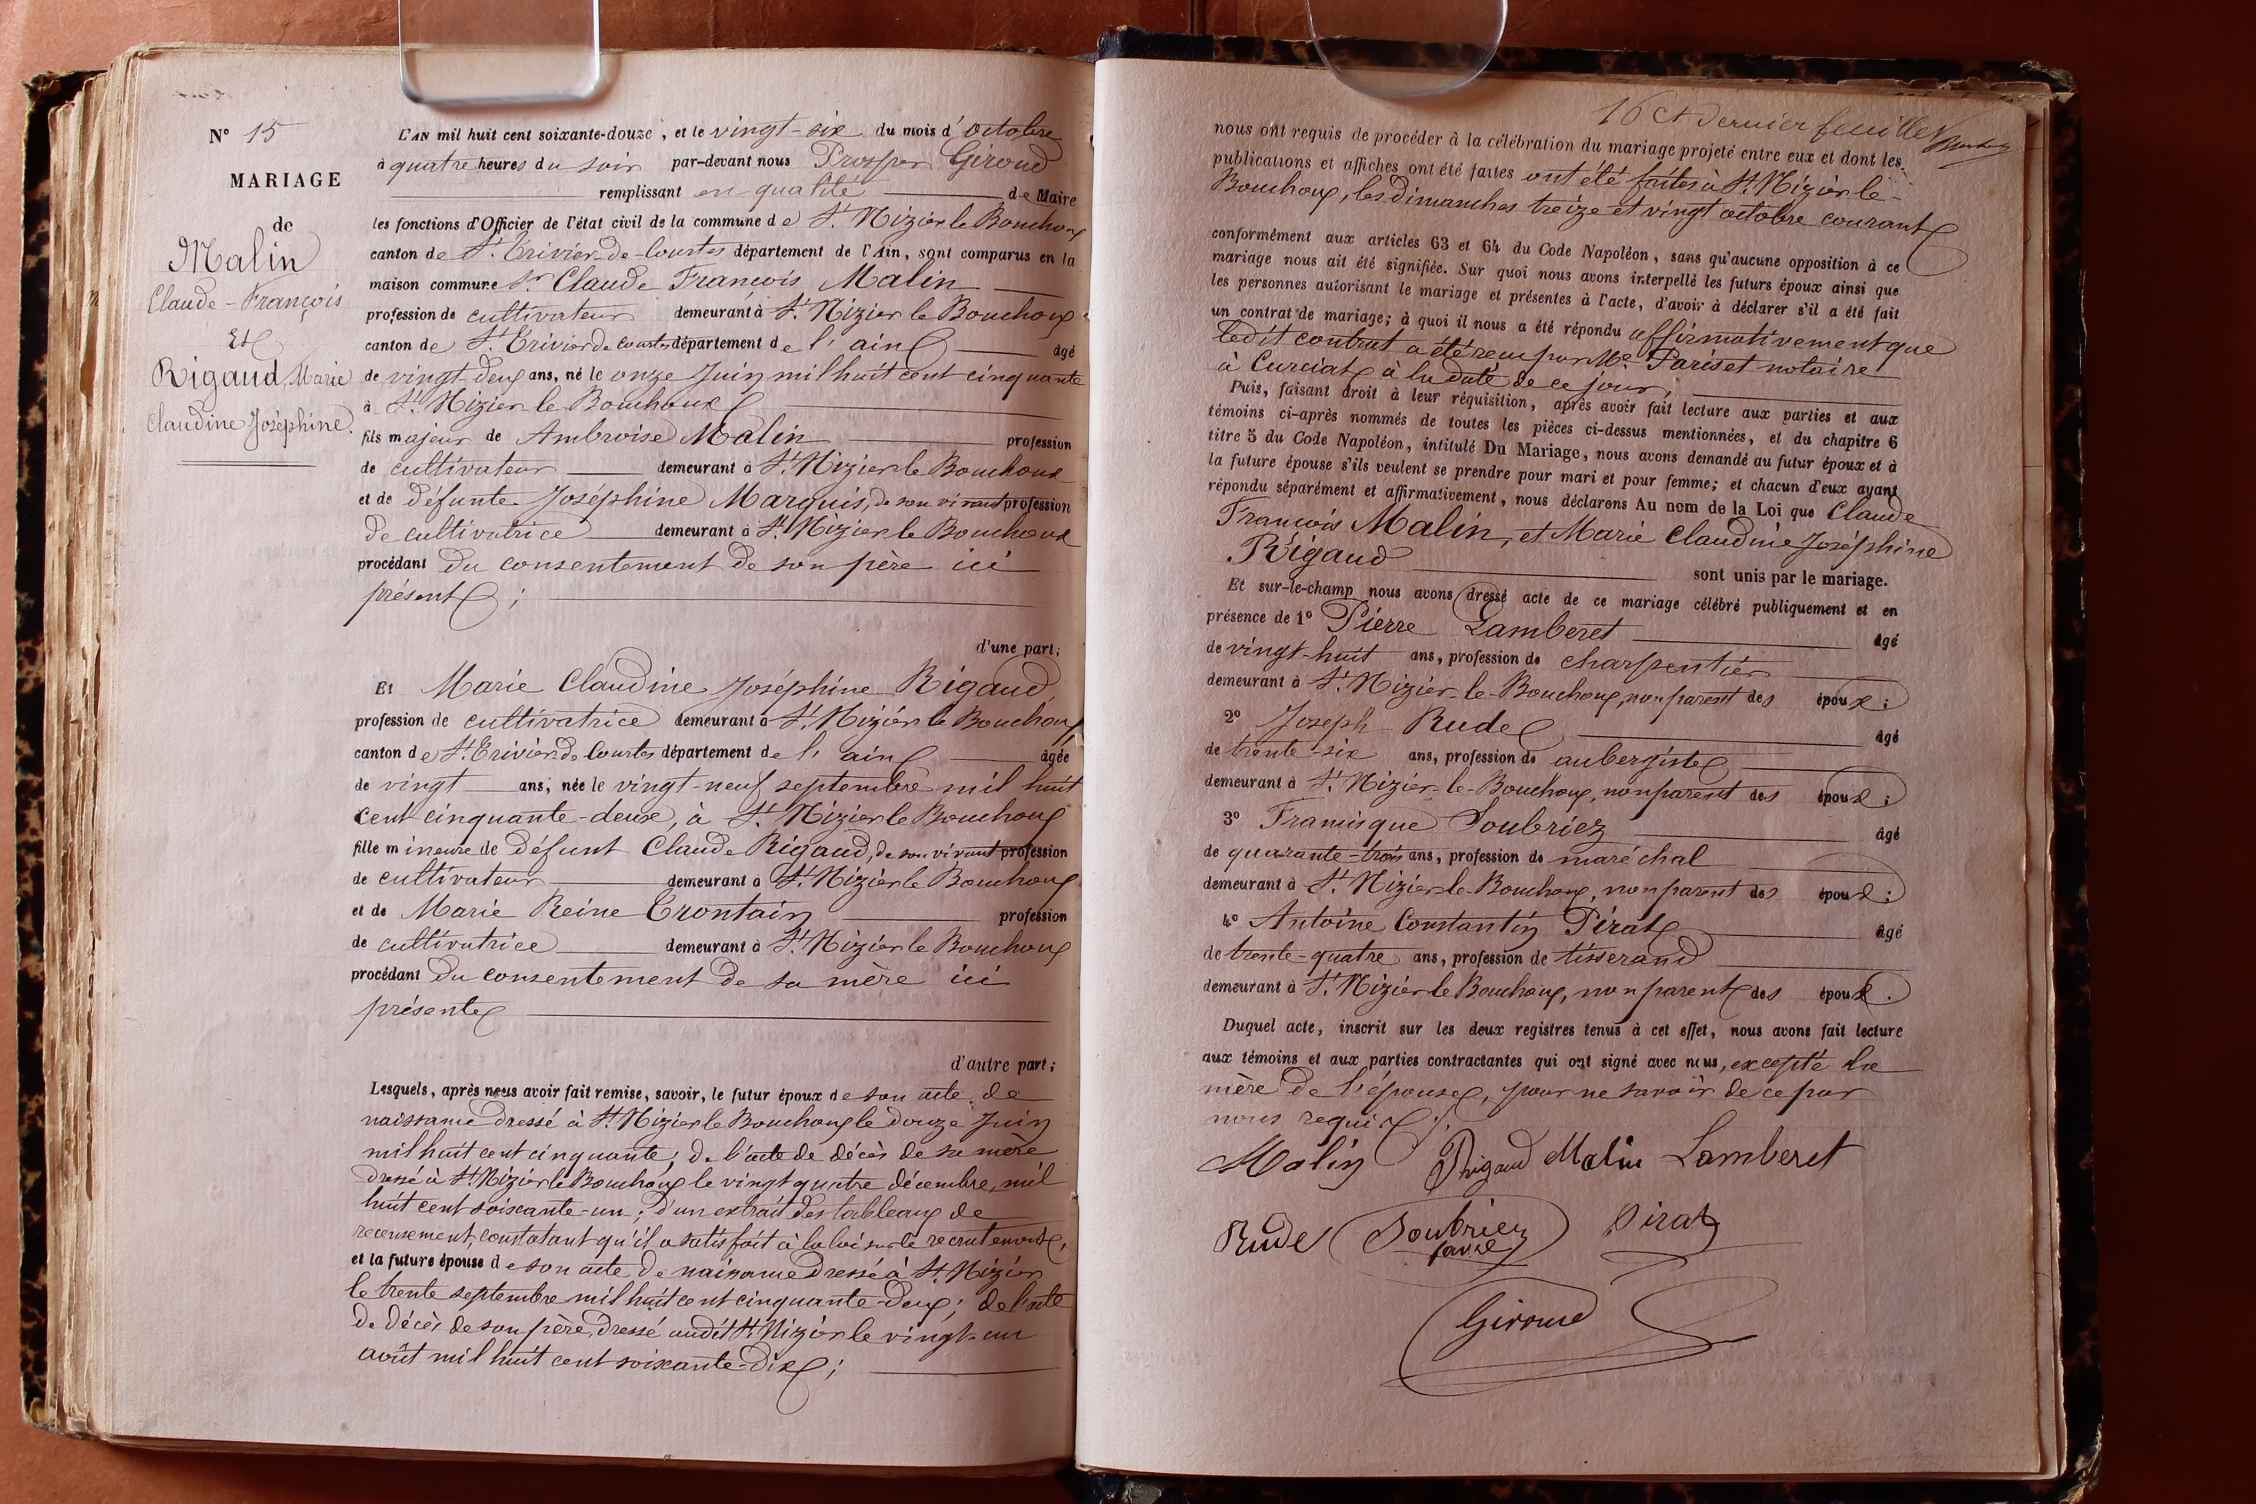 N° 15
MARIAGE
de
Malin
Claude-François
Et
Rigaud Marie
Claudine Joséphine.
L'AN mil huit cent soixante-douze, et le vingt-six du mois d'octobre
à quatre heures du soir par-devant nous Prosper Giroud
remplissant en qualité de Maire
les fonctions d'Officier de l'état civil de la commune de St. Nizier le Bouchoux
canton de St. Trivier-de-Courtes département de l'Ain, sont comparus en la
maison commune Sr. Claude François Malin
profession de cultivateur demeurant à St. Nizier le Bouchoux
canton de St. Trivier de Courtes département de l'ain âgé
de vingt-deux ans, né le onze Juin mil huit cent cinquante
à St. Nizier le Bouchoux
fils majeur de Ambroise Malin profession
de cultivateur demeurant à St. Nizier le Bouchoux
et de défunte Joséphine Marquis, de son vivant profession
de cultivatrice demeurant à St. Nizier le Bouchoux
procédant du consentement de son père ici
présent ;
d'une part;
Et Marie Claudine Joséphine Rigaud
profession de cultivatrice demeurant à St. Nizier le Bouchoux,
canton de St. Trivier de Courtes département de l'ain âgée
de vingt ans, née le vingt-neuf septembre mil huit
cent cinquante-deux, à St. Nizier le Bouchoux
fille mineure de défunt Claude Rigaud, de son vivant profession
de cultivateur demeurant à St. Nizier le Bouchoux
et de Marie Reine Trontain profession
de cultivatrice demeurant à St. Nizier le Bouchoux
procédant du consentement de sa mère ici
présente
d'autre part;
Lesquels, après nous avoir fait remise, savoir, le futur époux de son acte de
naissance dressé à St. Nizier le Bouchoux le douze Juin
mil huit cent cinquante; de l'acte de décès de sa mère
dressé à St. Nizier le Bouchoux le vingt quatre décembre mil
huit cent soixante-un; d'un extrait des tableaux de
recensement, constatant qu'il a satisfait à la loi sur le recrutement,
et la future épouse de son acte de naissance dressé à St. Nizier
le trente septembre mil huit cent cinquante-deux; de l'acte
de décès de son père, dressé audit St. Nizier le vingt-un
août mil huit cent soixante-dix ;
16 et dernier feuillet
nous ont requis de procéder à la célébration du mariage projeté entre eux et dont les
publications et affiches ont été faites ont été faites à St. Nizier le-
Bouchoux, les dimanches treize et vingt octobre courant
conformément aux articles 63 et 64 du Code Napoléon, sans qu'aucune opposition à ce
mariage nous ait été signifiée. Sur quoi nous avons interpellé les futurs époux ainsi que
les personnes autorisant le mariage et présentes à l'acte, d'avoir à déclarer s'il a été fait
un contrat de mariage; à quoi il nous a été répondu affirmativement que
ledit contrat a été reçu par Me. Pariset notaire
à Curciat à la date de ce jour;
Puis, faisant droit à leur réquisition, après avoir fait lecture aux parties et aux
témoins ci-après nommés de toutes les pièces ci-dessus mentionnées, et du chapitre 6
titre 5 du Code Napoléon, intitulé Du Mariage, nous avons demandé au futur époux et à
la future épouse s'ils veulent se prendre pour mari et pour femme; et chacun d'eux ayant
répondu séparément et affirmativement, nous déclarons Au nom de la Loi que Claude
François Malin, et Marie Claudine Joséphine
Rigaud sont unis par le mariage.
Et sur-le-champ nous avons dressé acte de ce mariage célébré publiquement et en
présence de 1° Pierre Lamberet âgé
de vingt-huit ans, profession de charpentier
demeurant à St. Nizier-le-Bouchoux, non parent des époux;
2° Joseph Rude âgé
de trente-six ans, profession de aubergiste
demeurant à St. Nizier-le-Bouchoux, non parent des époux;
3° Francisque Soubriez âgé
de quarante-trois ans, profession de maréchal
demeurant à St. Nizier-le-Bouchoux, non parent des époux;
4° Antoine Constantin Pirat âgé
de trente-quatre ans, profession de tisserand
demeurant à St. Nizier le Bouchoux, non parent des époux.
Duquel acte, inscrit sur les deux registres tenus à cet effet, nous avons fait lecture
aux témoins et aux parties contractantes qui ont signé avec nous, excepté la
mère de l'épouse, pour ne savoir de ce par
nous requis.
Malin Rigaud Malin Lamberet
Rude Soubriez Pirat
Giroud